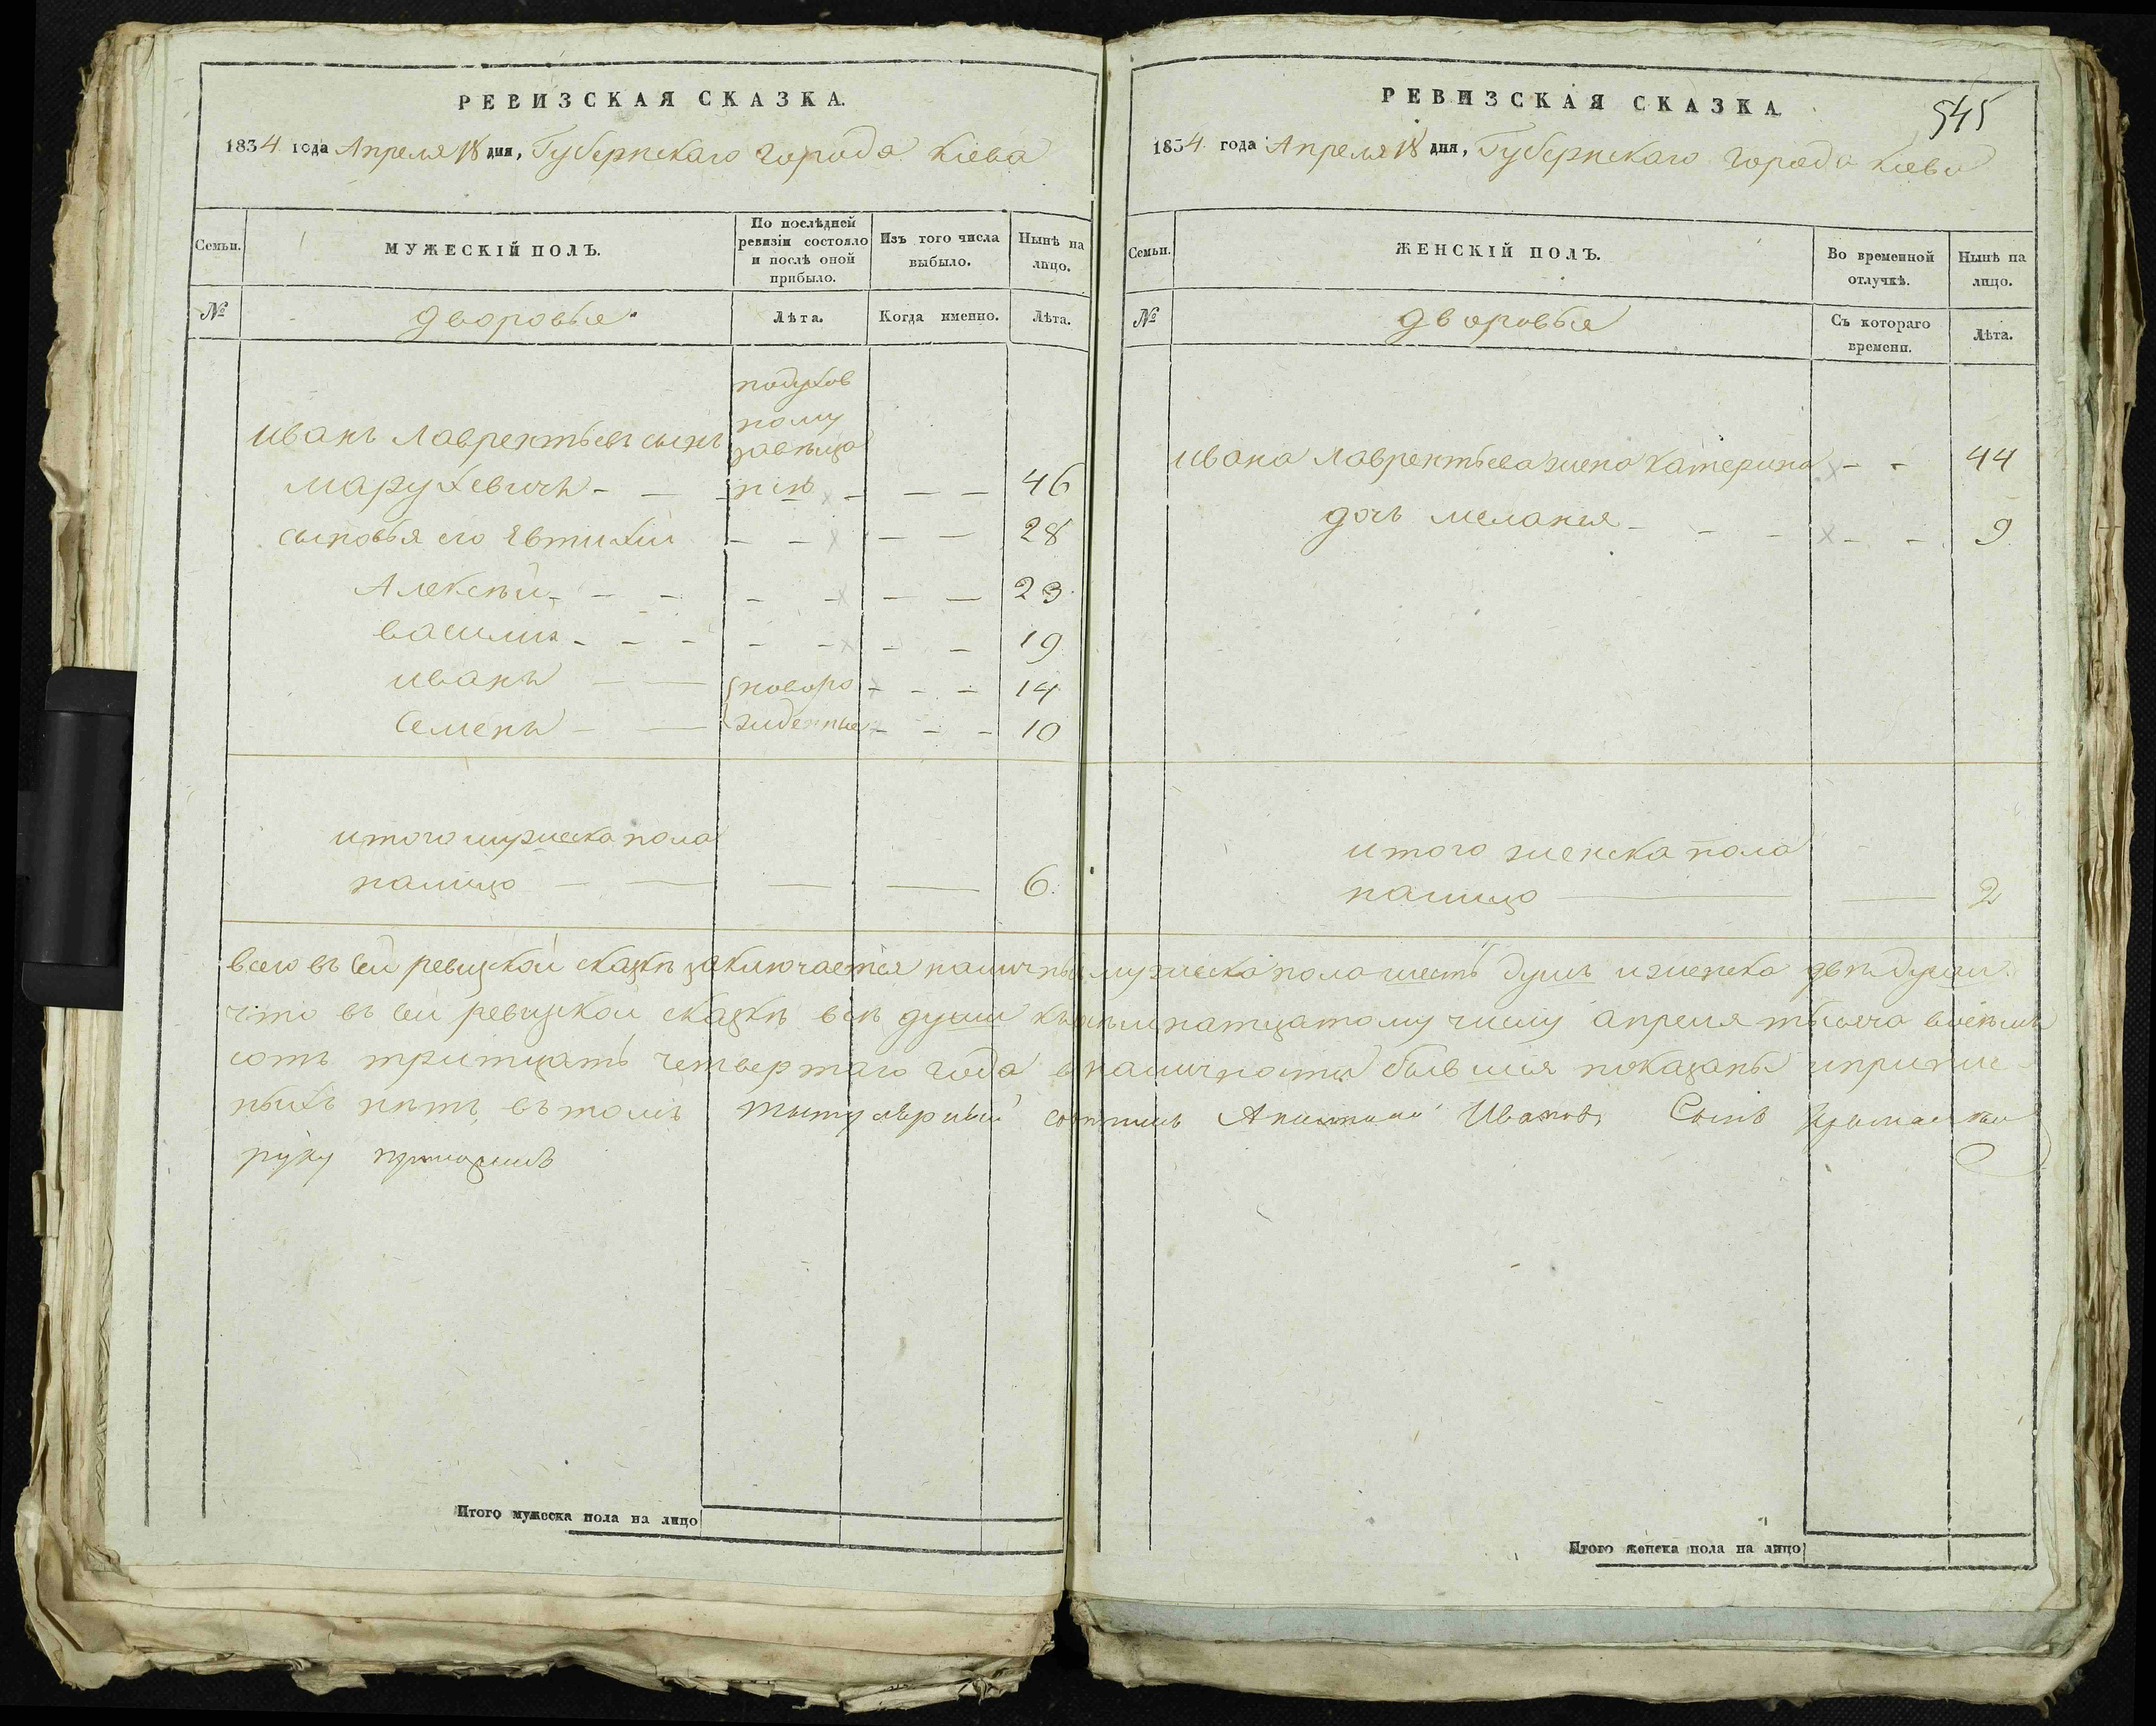 РЕВИЗСКАЯ СКАЗКА.
1834 года Апреля 18 дня, Губернскаго города Кіева
Семьи.
МУЖЕСКІЙ ПОЛЪ.
По послѣдней ревизіи состояло и послѣ оной прибыло.
Изъ того числа выбыло.
Нынѣ на лицо.
№
дворовые
Лѣта.
Когда именно.
Лѣта.
подухов
ному
завѣща
нію
Иванъ Лаврентьевъ сынъ
Марухевичъ - — - — — 46
сыновья его Евтихій — - — — 28
Алексѣй - - - - - — — 23
василий - - - - - - — 19
иванъ — — новоро - - - 14
Семенъ - — жденные - - - 10
итого мужеска пола
налицо — — — — 6.
РЕВИЗСКАЯ СКАЗКА
545
1834 года Апреля 18 дня, Губернскаго города Кіева
Семьи.
ЖЕНСКІЙ ПОЛЪ.
Во временной отлучкѣ.
Нынѣ на лицо.
№
дворовые
Съ котораго времени.
Лѣта.
Ивана Лаврентьева жена Катерина - - 44
дочь мелания - - - - - 9
итого женска пола
налицо — — 2
всего въ сей ревизкой сказкѣ заключается наличныхъ мужеска пола шесть душъ и женска двѣ души.
что въ сей ревизкой сказкѣ всѣ души къ осьмнатцатому числу апреля тысяча восемь
сотъ тритцать четвертаго года в наличности бывшия показаны и приписных
нѣтъ, въ томъ титулярный совѣтникъ Иванов Сынъ
руку приложилъ
Итого мужеска пола на лицо
Итого женска пола на лицо